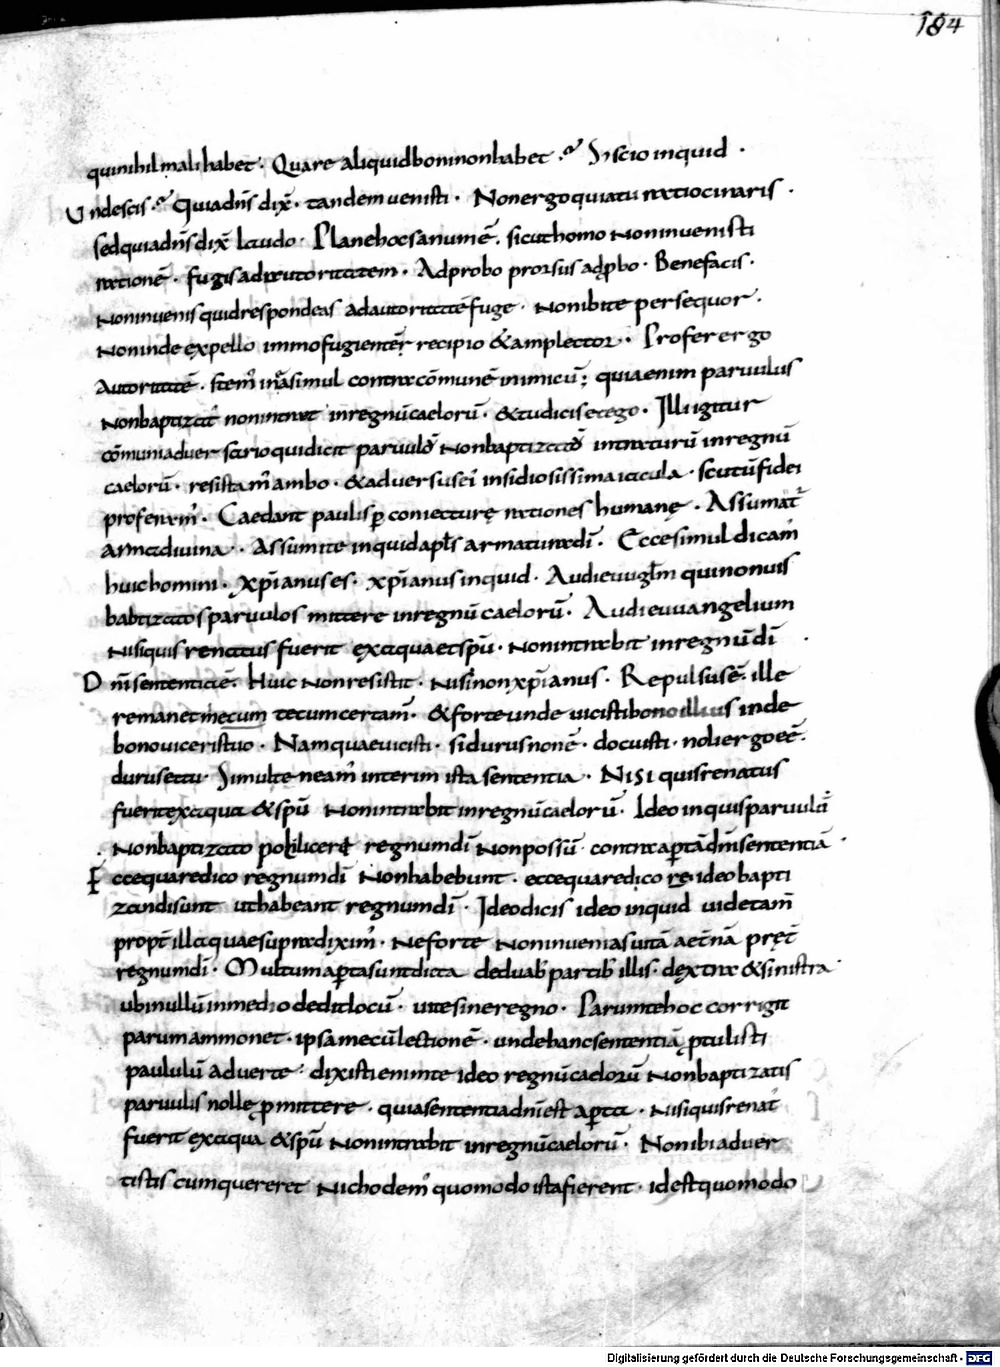 184
qui nihil mali habet · Quare aliquid boni non habet · Si scio inquid ·
Unde scis · Quia dn̄s dix̄ · tandem uenisti · Non ergo quia tu ratiocinaris ·
sed quia dn̄s dix̄ laudo · Plane hoc sanum ē · sicut homo non inuenisti
rationē · fugis ad autoritatem · Adprobo prorsus adp̱bo · Benefacis ·
Non inuenis quid respondeas ad autoritatē fuge · non ibi te persequor ·
Non inde expello immo fugientē recipio & amplector · Profer ergo
Autoritatē · stem' in cā simul contra cōmunē inimicū; quia enim paruulus
non baptizat' non intrat in regnū caelorū · & tu dicis et ego · Illi igitur
cōmuni aduersario qui dicit paruulos non baptizatos intraturū in regnū
caelorū · resistam' ambo · & aduersus ei' insidiosissima iacula · scutū fidei
proferam' · Caedant paulisp̱ coniecturę rationes humanę · Assumat'
arma diuina · Assumite inquid apl̄s armatura dī · Ecce simul dicam'
huic homini · xp̄ianus es · xp̄ianus inquid · Audi euuḡlm qui non uis
babtizatos paruulos mittere in regnū caelorū · Audi euuangelium
Nisi quis renatus fuerit ex aqua et sp̄u · non intrabit in regnū dī ·
Dnī sententia ē · Huic non resistit · nisi non xp̄ianus · Repulsus ē · ille
remanet mecum tecum certam̄ · & forte unde uicisti bono illius inde
bono uiceris tuo · Nam quae uicisti · si durus non ē · docuisti · noli ergo eē ·
durus et tu · Simul teneam' interim ista sententia · Nisi quis renatus
fuerit ex aqua & sp̄u non intrabit in regnū caelorū · Ideo inquis paruulū
non baptizato pollicere regnum dī non possū · contra ap̱tā dnī sententiā ·
Ecce quare dico regnum dī non habebunt · ecce quare dico re ideo bapti
zandi sunt ut habeant regnum dī · Ideo dicis ideo inquid uidetam̄
propt' illa quae supra dixim' · Ne forte non inuenias uitā aet'nā pręt'
regnum dī · Multum ap̱ta sunt dicta de duab' partib' illis · dextra & sinistra ·
ubi nullū in medio dedit locū · uitę sine regno · Parum te hoc corrigit
parum ammonet · ipsa mecū lectionē · unde hanc sententiā p̱tulisti
paululū aduerte · dixisti enim te ideo regnū caelorū non baptizatis
paruulis nolle p̱mittere · quia sententia dnī est ap̱ta · Nisi quis renat'
fuerit ex aqua & sp̄u non intrabit in regnū caelorū · Non ibi aduer
tistis cum quereret Nichodem' quomodo ista fierent · id est quomodo
Digitalisierung gefördert durch die Deutsche Forschungsgemeinschaft - DFG